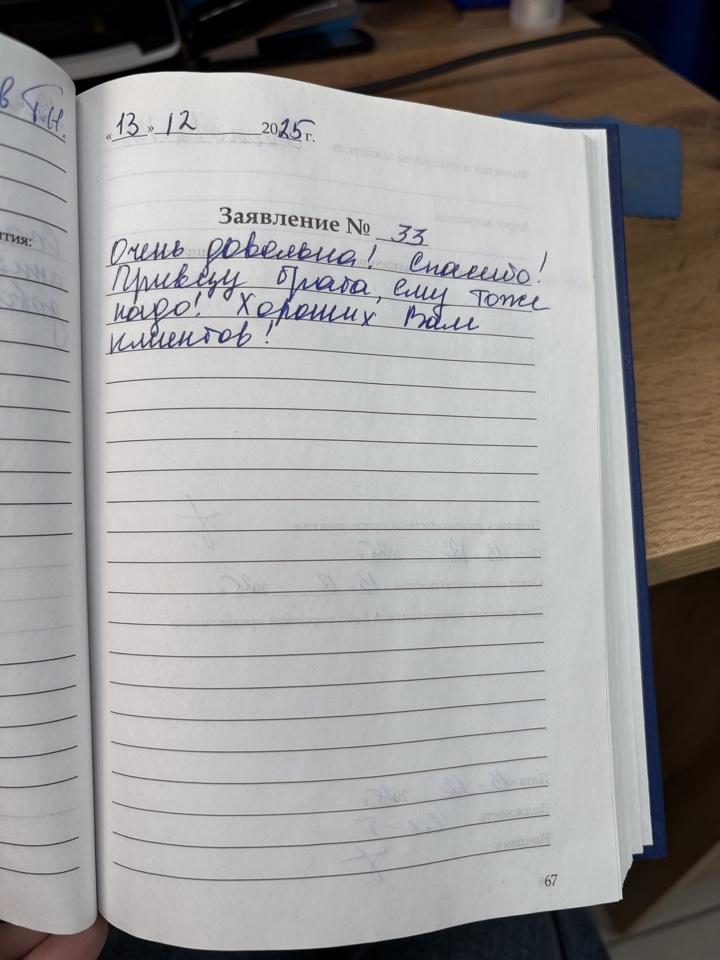 в Т.Н.
тия:
«13» 12 2025 г.
Заявление № 33
Очень довольна! Спасибо!
Привезу брата, ему тоже
надо! Хороших Вам
клиентов!
67